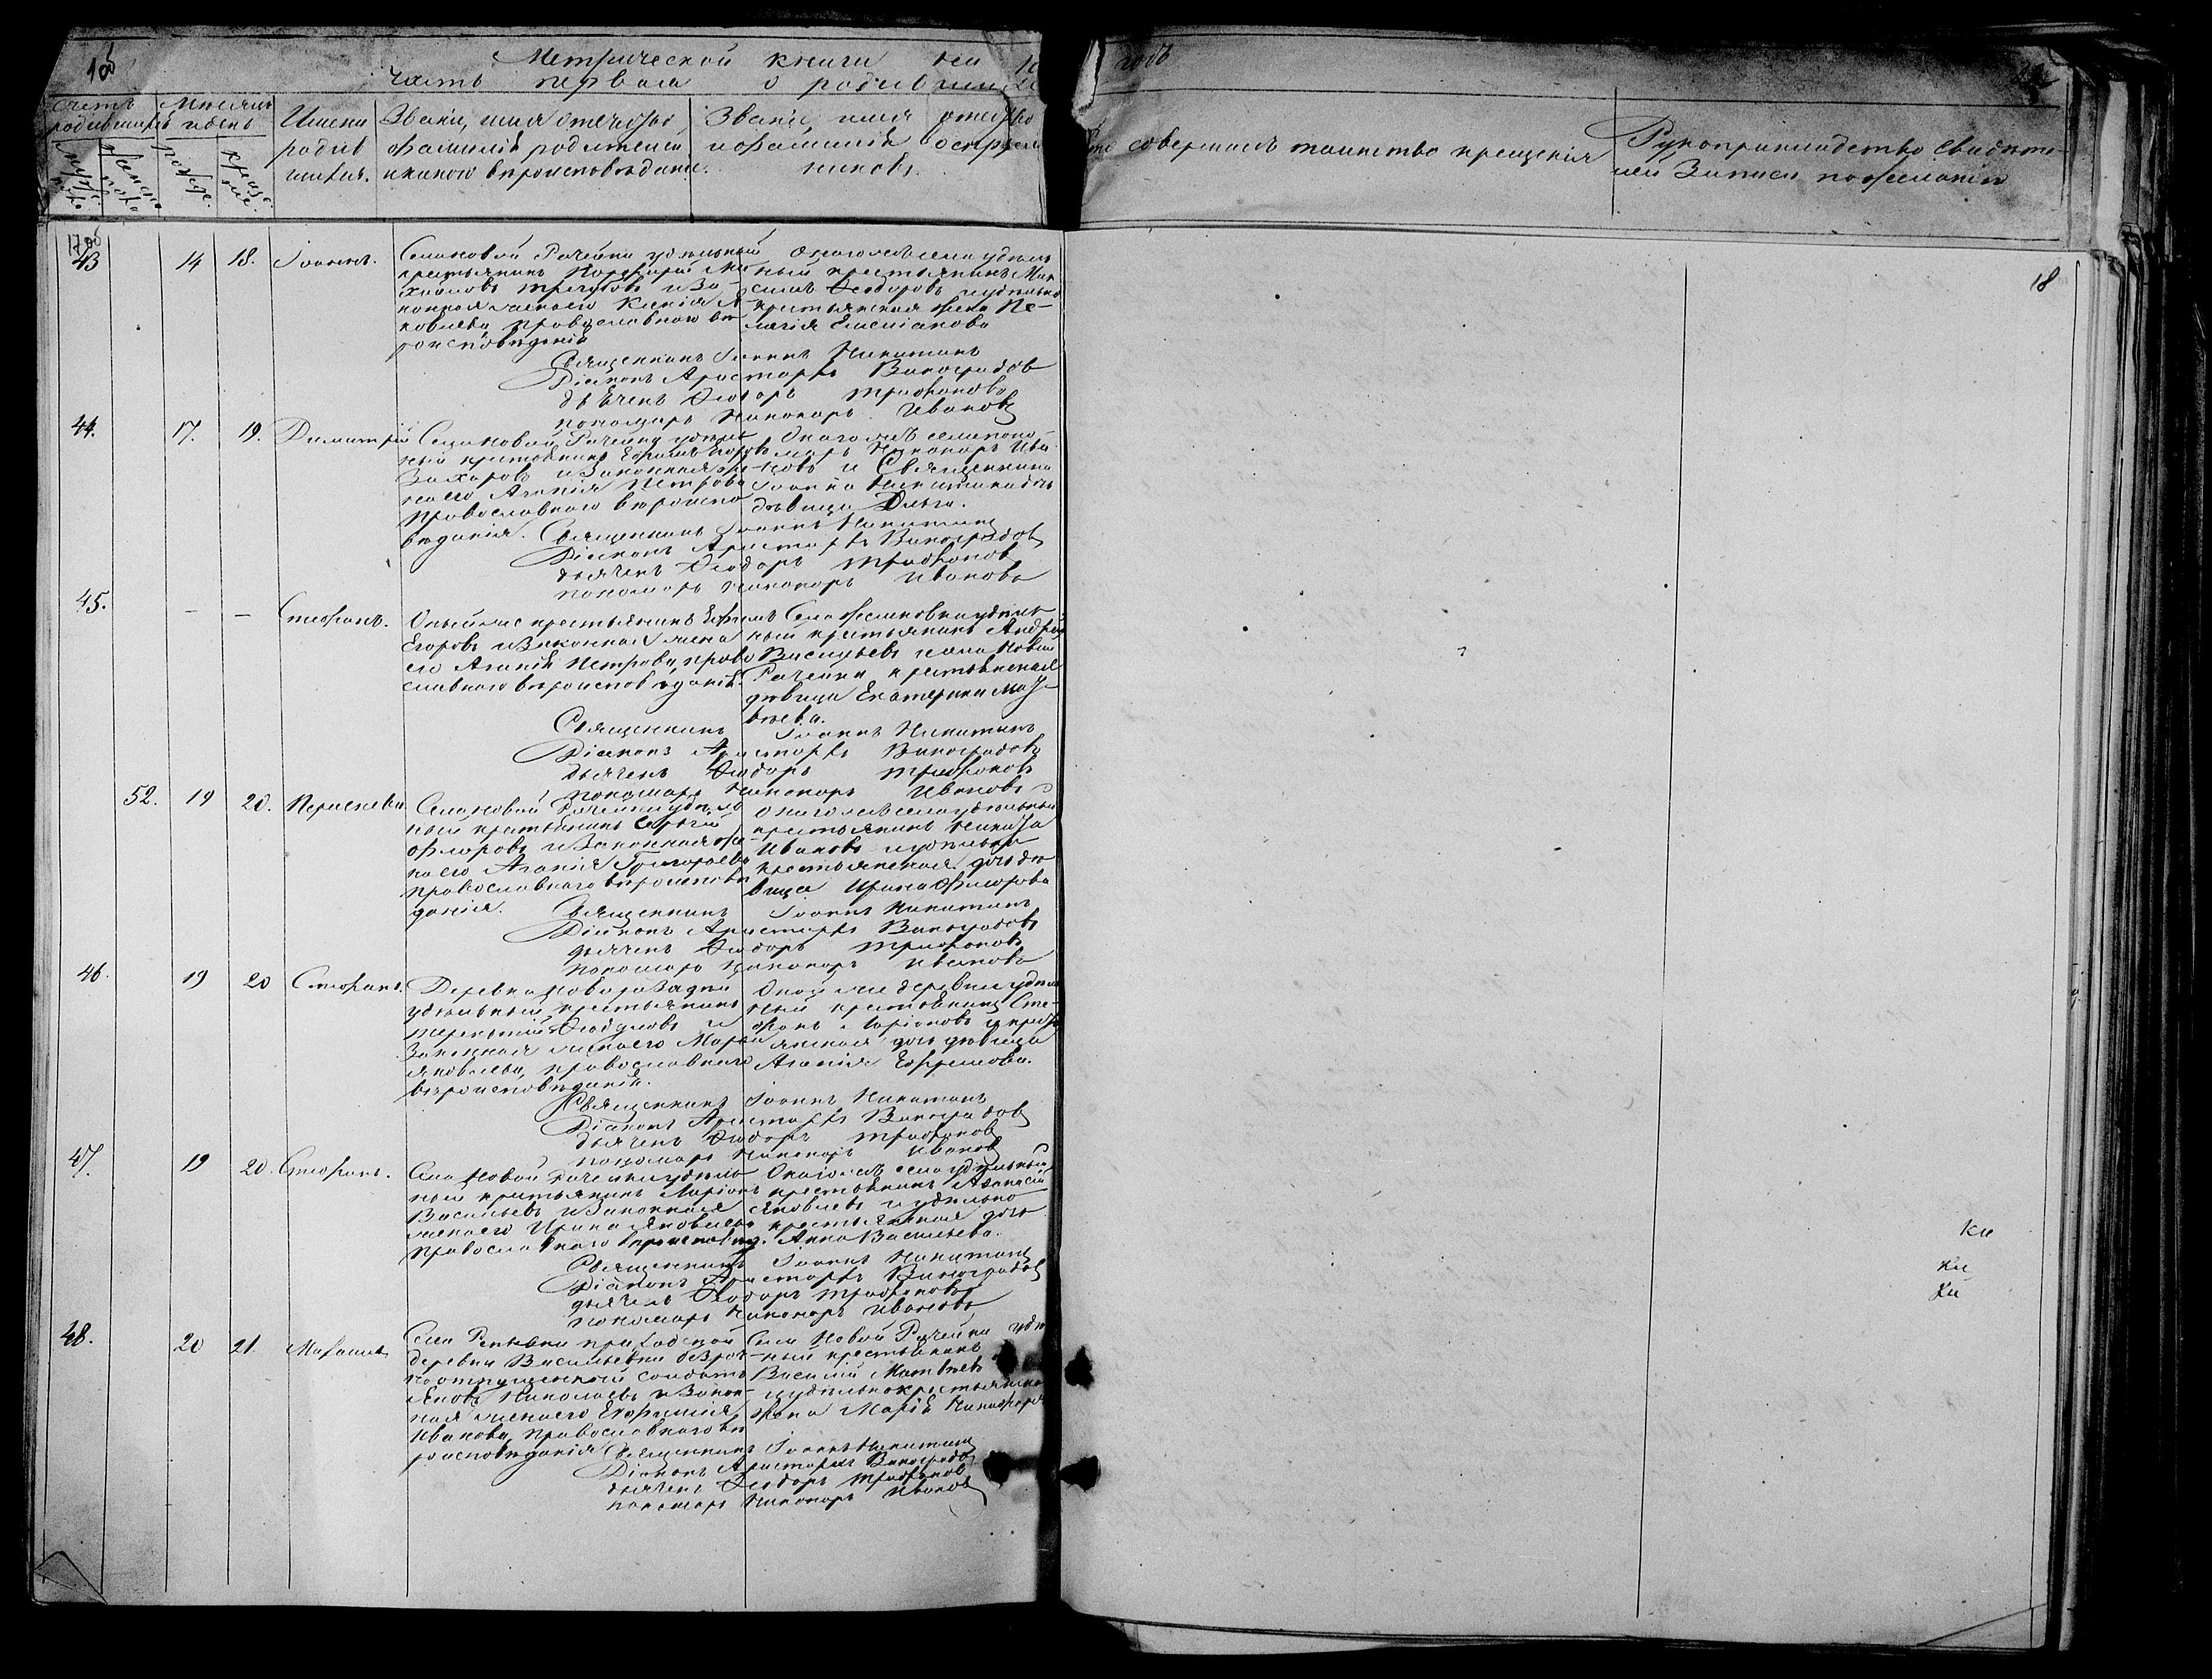 Метрической книги на
часть первая о родив
годъ
Счетъ родившихся
Мѣсяцъ и день
Имена родив шихся.
Званіе, имя отчество, фамилія родителей и какого вѣроисповѣданія.
Званіе, имя отчество и фамилія воспріем никовъ.
совершалъ таинство крещенія
Рукоприкладство свидѣте-
лей записи по желанію
мужск. пола
женска пола
рожде.
креще нія.
18
43 14 18. Іоаннъ.
Села Новой Рачейки удѣльный
крестьянинъ Порфирій Ми
хайловъ и за-
конная жена его Ксенія Я-
ковлева, православного вѣ-
роисповѣданія
Онаго же села удѣль
ный крестьянинъ Мак
симъ Ѳеодоровъ и удѣльно
крестьянская жена Пе-
лагія Емеліанова
Священникъ Іоаннъ Никитинъ
Діаконъ Аристархъ Виноградовъ
дьячекъ Ѳеодоръ Трифоновъ
пономарь Никаноръ Ивановъ
44. 17. 19. Димитрій
Села Новой Рачейки удѣль
ный крестьянинъ Ефимъ Егоровъ
Захаровъ и законная же
на его Агапія Петрова
православного вѣроиспо
вѣданія.
Онаго же села поно-
марь Никаноръ Ива-
новъ и Священника
Іоанна Никитина дочь
дѣвица Ольга.
Священникъ Іоаннъ Никитинъ
Діаконъ Аристархъ Виноградовъ
дьячекъ Ѳеодоръ Трифоновъ
пономарь Никаноръ Ивановъ
45. – – Стефанъ.
Оный же крестьянинъ Ефимъ
Егоровъ и законная жена
его Агапія Петрова, право
славного вѣроисповѣданія.
Села удѣль
ный крестьянинъ Андрей
Васильевъ и села Новой
Рачейки крестьянская
дѣвица Екатерина Мат
вѣева.
Священникъ Іоаннъ Никитинъ
Діаконъ Аристархъ Виноградовъ
дьячекъ Ѳеодоръ Трифоновъ
пономарь Никаноръ Ивановъ
52. 19 20. Параскева
Села Новой Рачейки удѣль
ный крестьянинъ Сергій
Флоровъ и законная же
на его Агапія Григорьева
православного вѣроисповѣ
данія.
Онаго же села удѣльный
крестьянинъ Никита
Ивановъ и удѣльно
крестьянская дочь дѣ
вица Ирина Флорова
Священникъ Іоаннъ Никитинъ
Діаконъ Аристархъ Виноградовъ
дьячекъ Ѳеодоръ Трифоновъ
пономарь Никаноръ Ивановъ
46. 19 20 Стефанъ.
Деревни
удѣльный крестьянинъ
Терентій Ѳеодуловъ и
законная жена его Марѳа
Яковлева, православного
вѣроисповѣданія.
Оной же деревни удѣль
ный крестьянинъ Сте-
фанъ Ларіоновъ и кресть
янская дочь дѣвица
Агапія Ефремова.
Священникъ Іоаннъ Никитинъ
Діаконъ Аристархъ Виноградовъ
дьячекъ Ѳеодоръ Трифоновъ
пономарь Никаноръ Ивановъ
47. 19 20. Стефанъ.
Села Новой Рачейки удѣль
ный крестьянинъ Ларіонъ
Васильевъ и законная
жена его Ирина Яковлева
православного вѣроисповѣд.
Онаго же села удѣльный
крестьянинъ Аѳанасій
Яковлевъ и удѣльно
крестьянская дочь
Анна Васильева.
Священникъ Іоаннъ Никитинъ
Діаконъ Аристархъ Виноградовъ
дьячекъ Ѳеодоръ Трифоновъ
пономарь Никаноръ Ивановъ
48. 20 21. Михаилъ
Села Репьевки приходской
деревни Васильевки безроч
но отпущенный солдатъ
Яковъ Николаевъ и закон-
ная жена его Евфимія
Иванова, православного вѣ
роисповѣданія
Села Новой Рачейки удѣ
ный крестьянинъ
Василій Матвѣевъ
и удѣльно крестьянская
жена Марія Никифорова
Священникъ Іоаннъ Никитинъ
Діаконъ Аристархъ Виноградовъ
дьячекъ Ѳеодоръ Трифоновъ
пономарь Никаноръ Ивановъ